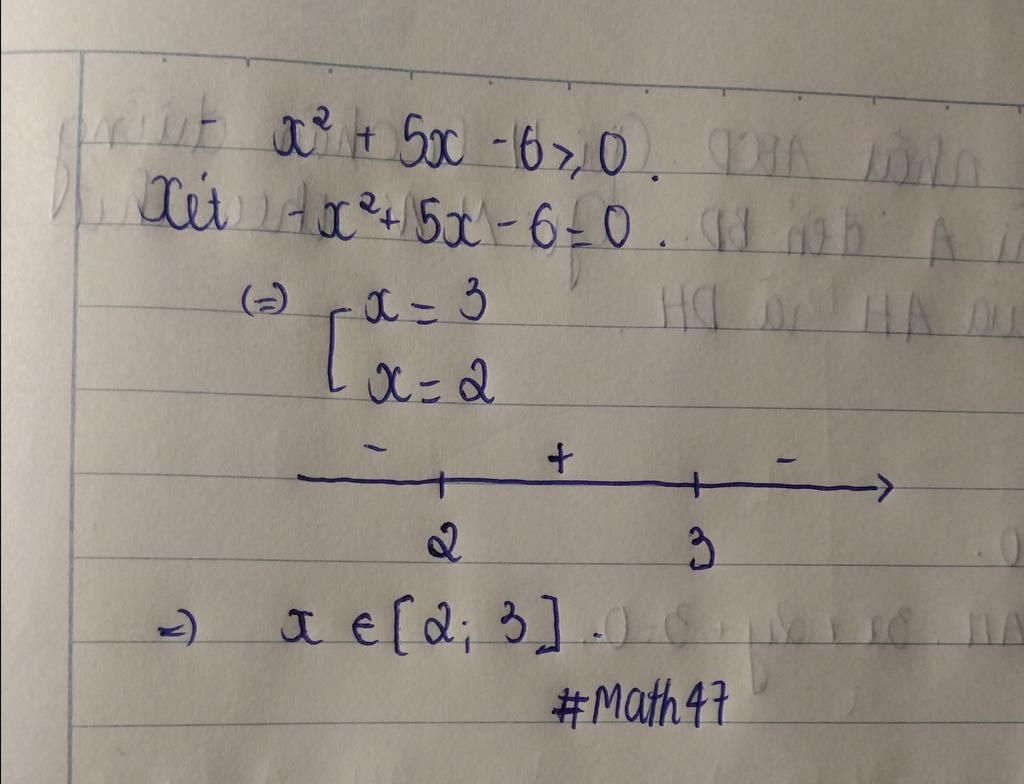 - x² + 5x - 6 ≥ 0.
Xét -x² + 5x - 6 = 0.
(=) [ x = 3
x = 2
- + -
2 3
=) x ∈ [2; 3].
#Math47